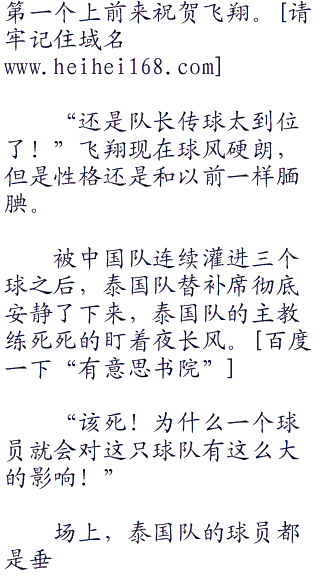 第一个上前来祝贺飞翔。[请
牢记住域名
www.heihei168.com]
“还是队长传球太到位
了！”飞翔现在球风硬朗，
但是性格还是和以前一样腼
腆。
被中国队连续灌进三个
球之后，泰国队替补席彻底
安静了下来，泰国队的主教
练死死的盯着夜长风。[百度
一下“有意思书院”]
“该死！为什么一个球
员就会对这只球队有这么大
的影响！”
场上，泰国队的球员都
是垂